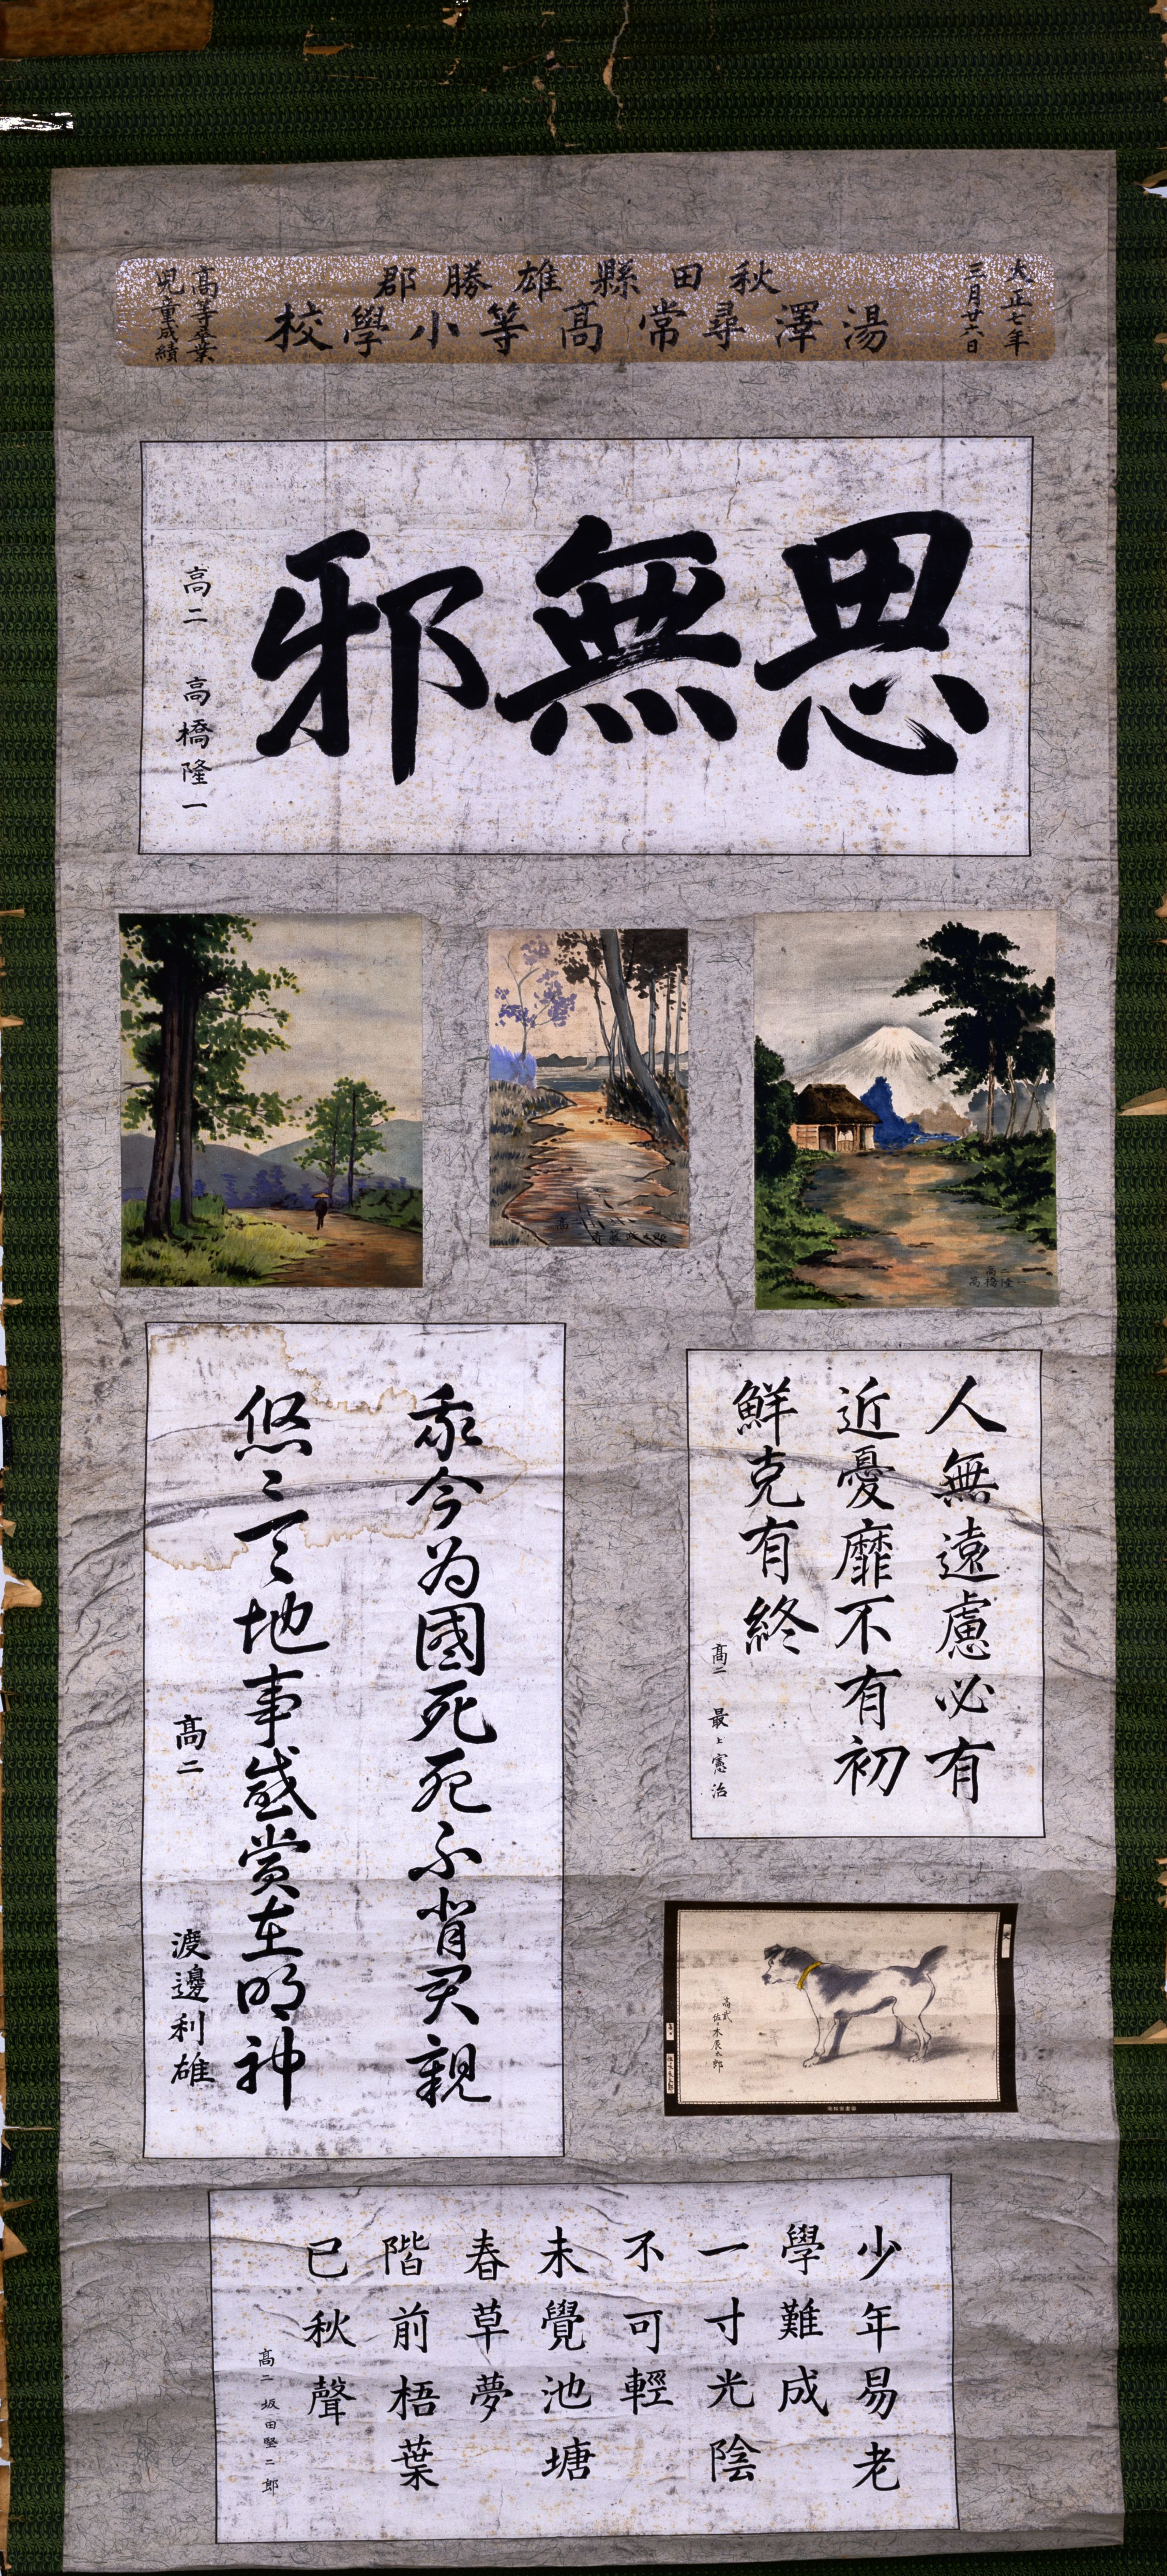 大正七年
三月廿六日
秋田縣雄勝郡
湯澤尋常高等小學校
高等卒業
児童成績
思無邪
高二 高橋隆一
高二
高橋隆一
人無遠慮必有
近憂靡不有初
鮮克有終
高二 最上憲治
我今為國死死不背君親
悠〻天地事感賞在明神
高二 渡邊利雄
高弐
佐々木辰太郎
少年易老
學難成
一寸光陰
不可輕
未覺池塘
春草夢
階前梧葉
已秋聲
高二 坂田堅二郎